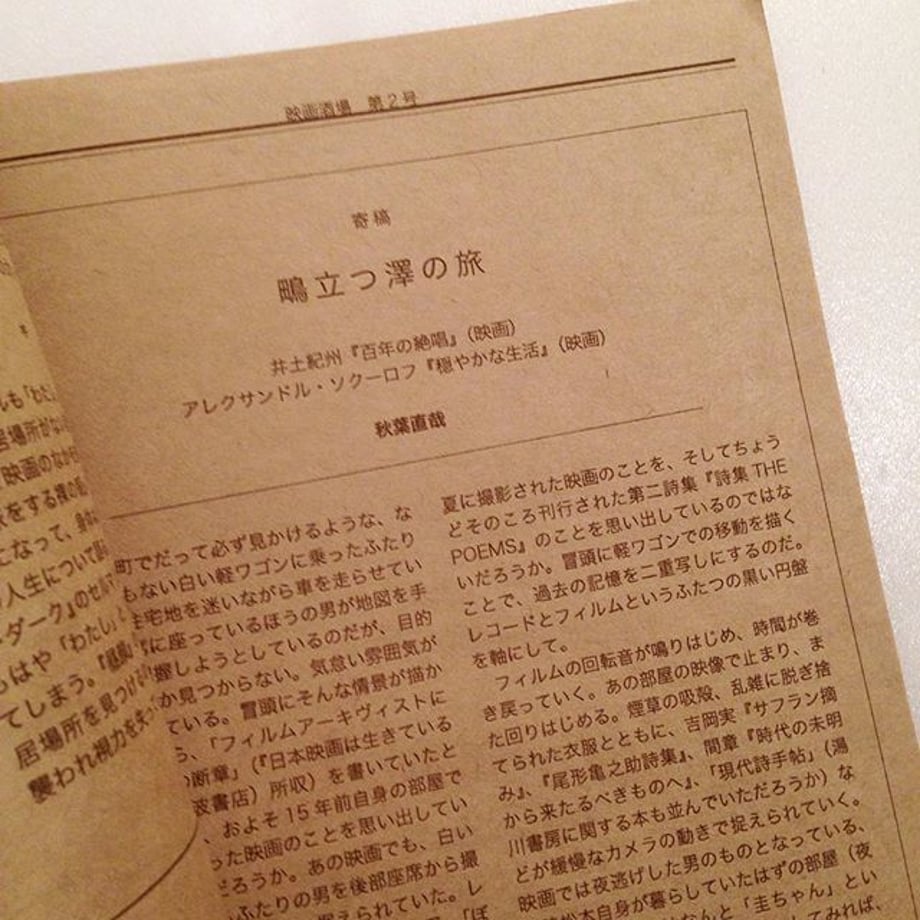 映画酒場 第2号
寄稿
鴫立つ澤の旅
井土紀州『百年の絶唱』（映画）
アレクサンドル・ソクーロフ『穏やかな生活』（映画）
秋葉直哉
町でだって必ず見かけるような、な
もない白い軽ワゴンに乗ったふたり
宅地を迷いながら車を走らせてい
に座っているほうの男が地図を手
握しようとしているのだが、目的
か見つからない。気怠い雰囲気が
ている。冒頭にそんな情景が描か
ら、「フィルムアーキヴィストに
断章」（『日本映画は生きている
波書店）所収）を書いていたと
、およそ15年前自身の部屋で
った映画のことを思い出してい
だろうか。あの映画でも、白い
ふたりの男を後部座席から撮
捉えられていた。レ
「ぼ
夏に撮影された映画のことを、そしてちょう
どそのころ刊行された第二詩集『詩集 THE
POEMS』のことを思い出しているのではな
いだろうか。冒頭に軽ワゴンでの移動を描く
ことで、過去の記憶を二重写しにするのだ。
レコードとフィルムというふたつの黒い円盤
を軸にして。
フィルムの回転音が鳴りはじめ、時間が巻
き戻っていく。あの部屋の映像で止まり、ま
た回りはじめる。煙草の吸殻、乱雑に脱ぎ捨
てられた衣服とともに、吉岡実『サフラン摘
み』、『尾形亀之助詩集』、間章『時代の未明
から来たるべきものへ』、「現代詩手帖」（湯
川書房に関する本も並んでいただろうか）な
どが緩慢なカメラの動きで捉えられていく。
映画では夜逃げした男のものとなっている、
松本自身が暮らしていたはずの部屋（夜
なんと「圭ちゃん」とい
みれば、
ルも「わたし
居場所がな
映画のなか
をする裸の
になって、身
人生について
ダーク』のセル
らはや「わたし」
てしまう。『昼
居場所を見つけ
襲われ視力を失